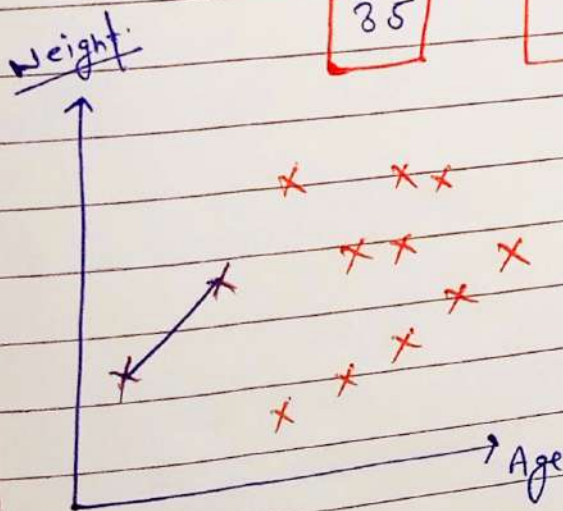 35
Weight
Age